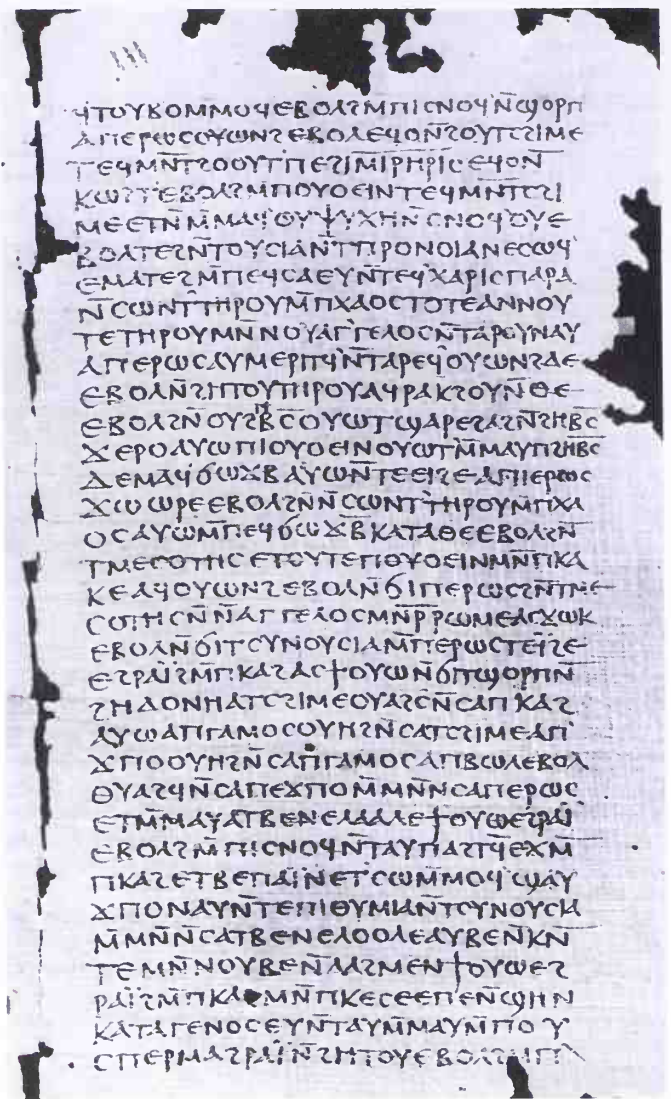 ϥⲧⲟⲩⲃⲟⲙⲙⲟϥⲉⲃⲟⲗϩⲙ̄ⲡⲓⲥⲛⲟϥⲛ̄ϣⲟⲣⲡ
ⲁⲡⲉⲣⲱⲥⲟⲩⲱⲛϩⲉⲃⲟⲗⲉϥⲟⲛ̄ϩⲟⲩⲧⲥϩⲓⲙⲉ
ⲧⲉϥⲙⲛ̄ⲧϩⲟⲟⲩⲧⲡⲉϩⲓⲙⲓⲣⲏⲣⲓⲥⲉϥⲟⲛ̄
ⲕⲱϩⲧⲉⲃⲟⲗϩⲙ̄ⲡⲟⲩⲟⲉⲓⲛⲧⲉϥⲙⲛ̄ⲧⲥϩⲓ
ⲙⲉⲉⲧⲛⲙ̄ⲙⲁϥⲟⲩⲯⲩⲭⲏⲛ̄ⲥⲛⲟϥⲟⲩⲉ
ⲃⲟⲗⲧⲉϩⲛ̄ⲧⲟⲩⲥⲓⲁⲛ̄ⲧⲡⲣⲟⲛⲟⲓⲁⲛⲉⲥⲱϥ
ⲉⲙⲁⲧⲉϩⲙ̄ⲡⲉϥⲥⲁⲉⲩⲛ̄ⲧⲉϥⲭⲁⲣⲓⲥⲡⲁⲣⲁ
ⲛ̄ⲥⲱⲛⲧⲧⲏⲣⲟⲩⲙ̄ⲡⲭⲁⲟⲥⲧⲟⲧⲉⲁⲛⲛⲟⲩ
ⲧⲉⲧⲏⲣⲟⲩⲙⲛ̄ⲛⲟⲩⲁⲅⲅⲉⲗⲟⲥⲛ̄ⲧⲁⲣⲟⲩⲛⲁⲩ
ⲁⲡⲉⲣⲱⲥⲁⲩⲙⲉⲣⲓⲧϥⲛ̄ⲧⲁⲣⲉϥⲟⲩⲱⲛϩⲇⲉ
ⲉⲃⲟⲗⲛ̄ϩⲏⲧⲟⲩⲧⲏⲣⲟⲩⲁϥⲣⲁⲕϩⲟⲩⲛ̄ⲑⲉ
ⲉⲃⲟⲗϩⲛ̄ⲟⲩϩⲏⲃⲥ̄ⲟⲩⲱⲧϣⲁⲣⲉϩⲁϩⲛ̄ϩⲏⲃⲥ̄
ϫⲉⲣⲟⲁⲩⲱⲡⲓⲟⲩⲟⲉⲓⲛⲟⲩⲱⲧⲙ̄ⲙⲁⲩⲡϩⲏⲃⲥ̄
ⲇⲉⲙⲁϥϭⲱϫⲃⲁⲩⲱⲛ̄ⲧⲉⲉⲓϩⲉⲁⲡⲉⲣⲱⲥ
ϫⲱⲱⲣⲉⲉⲃⲟⲗϩⲛ̄ⲛ̄ⲥⲱⲛⲧⲧⲏⲣⲟⲩⲙ̄ⲡⲭⲁ
ⲟⲥⲁⲩⲱⲙ̄ⲡⲉϥϭⲱϫⲃ̄ⲕⲁⲧⲁⲑⲉⲉⲃⲟⲗϩⲛ̄
ⲧⲙⲉⲥⲟⲧⲏⲥⲉⲧⲟⲩⲧⲉⲡⲟⲩⲟⲉⲓⲛⲙⲛ̄ⲡⲕⲁ
ⲕⲉⲁϥⲟⲩⲱⲛϩⲉⲃⲟⲗⲛ̄ϭⲓⲡⲉⲣⲱⲥϩⲛ̄ⲧⲙⲉ
ⲥⲟⲧⲏⲥⲛ̄ⲛ̄ⲁⲅⲅⲉⲗⲟⲥⲙⲛ̄ⲣ̄ⲣⲱⲙⲉⲁⲥϫⲱⲕ
ⲉⲃⲟⲗⲛ̄ϭⲓⲧⲥⲩⲛⲟⲩⲥⲓⲁⲙ̄ⲡⲉⲣⲱⲥⲧⲉⲉⲓϩⲉ
ⲉϩⲣⲁⲓ̈ϩⲙ̄ⲡⲕⲁϩⲁⲥϯⲟⲩⲱⲛ̄ϭⲓⲧϣⲟⲣⲡⲛ̄
ϩⲏⲇⲟⲛⲏⲁⲧⲥϩⲓⲙⲉⲟⲩⲁϩⲥⲛ̄ⲥⲁⲡⲕⲁϩ
ⲁⲩⲱⲁⲡⲅⲁⲙⲟⲥⲟⲩⲏϩⲛ̄ⲥⲁⲧⲥϩⲓⲙⲉⲁⲡⲉ
ϫⲡⲟⲟⲩⲏϩⲛ̄ⲥⲁⲡⲅⲁⲙⲟⲥⲁⲡⲃⲱⲗⲉⲃⲟⲗ
ⲟⲩⲁϩϥⲛ̄ⲥⲁⲡⲉϫⲡⲟⲙⲙⲛ̄ⲛ̄ⲥⲁⲡⲉⲣⲱⲥ
ⲉⲧⲙ̄ⲙⲁⲩⲁⲧⲃⲉⲛⲉⲗⲁⲁⲗⲉϯⲟⲩⲱⲉϩⲣⲁⲓ̈
ⲉⲃⲟⲗϩⲙ̄ⲡⲓⲥⲛⲟϥⲛ̄ⲧⲁⲩⲡⲁϩⲧϥⲉϫⲙ̄
ⲡⲕⲁϩⲉⲧⲃⲉⲡⲁⲓ̈ⲛⲉⲧⲥⲱⲙⲙⲟϥϣⲁⲩ
ϫⲡⲟⲛⲁⲩⲛ̄ⲧⲉⲡⲓⲑⲩⲙⲓⲁⲛ̄ⲧⲥⲩⲛⲟⲩⲥⲓⲁ
ⲙ̄ⲙⲛ̄ⲛ̄ⲥⲁⲧⲃⲉⲛⲉⲗⲟⲟⲗⲉⲁⲩⲃⲉⲛ̄ⲕⲛ̄
ⲧⲉⲙⲛ̄ⲛⲟⲩⲃⲉⲛ̄ⲗⲁϩⲙⲉⲛϯⲟⲩⲱⲉϩ
ⲣⲁⲓ̈ϩⲙ̄ⲡⲕⲁϩⲙⲛ̄ⲡⲕⲉⲥⲉⲉⲡⲉⲛ̄ϣⲏⲛ
ⲕⲁⲧⲁⲅⲉⲛⲟⲥⲉⲩⲛ̄ⲧⲁⲩⲙ̄ⲙⲁⲩⲙ̄ⲡⲟⲩ
ⲥⲡⲉⲣⲙⲁϩⲣⲁⲓ̈ⲛ̄ϩⲏⲧⲟⲩⲉⲃⲟⲗϩⲙ̄ⲡ